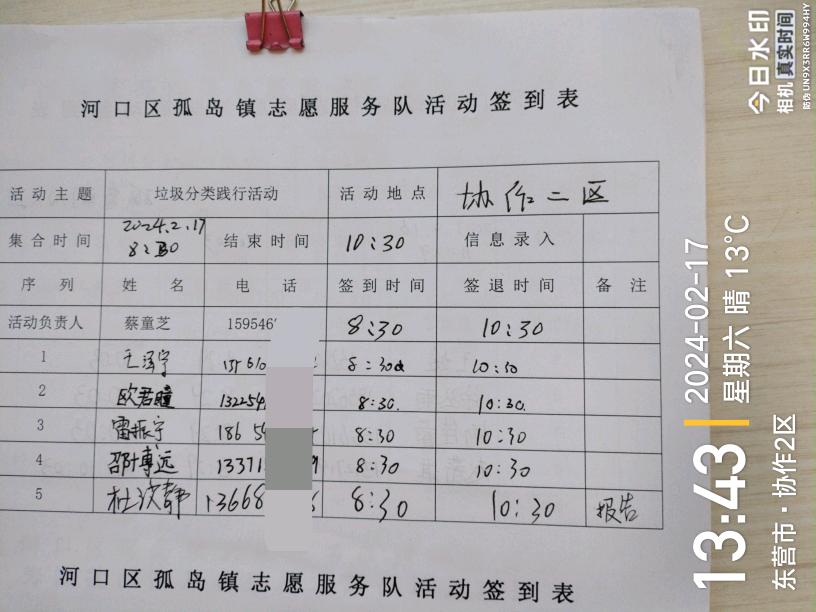 河口区孤岛镇志愿服务队活动签到表
活动主题 垃圾分类践行活动 活动地点 协作二区
集合时间 2024.2.17 8:30 结束时间 10:30 信息录入
序列 姓名 电话 签到时间 签退时间 备注
活动负责人 蔡童芝 159546 8:30 10:30
1 王泽宇 8:30 10:30
2 欧君瞳 132254 8:30. 10:30.
3 雷振宇 186 8:30 10:30
4 邵博远 13371 8:30 10:30
5 杜汶静 13668 8:30 10:30 报告
河口区孤岛镇志愿服务队活动签到表
13:43
2024-02-17
星期六 晴 13℃
东营市·协作2区
今日水印
相机 真实时间
防伪 UN9X3RR6W994HY